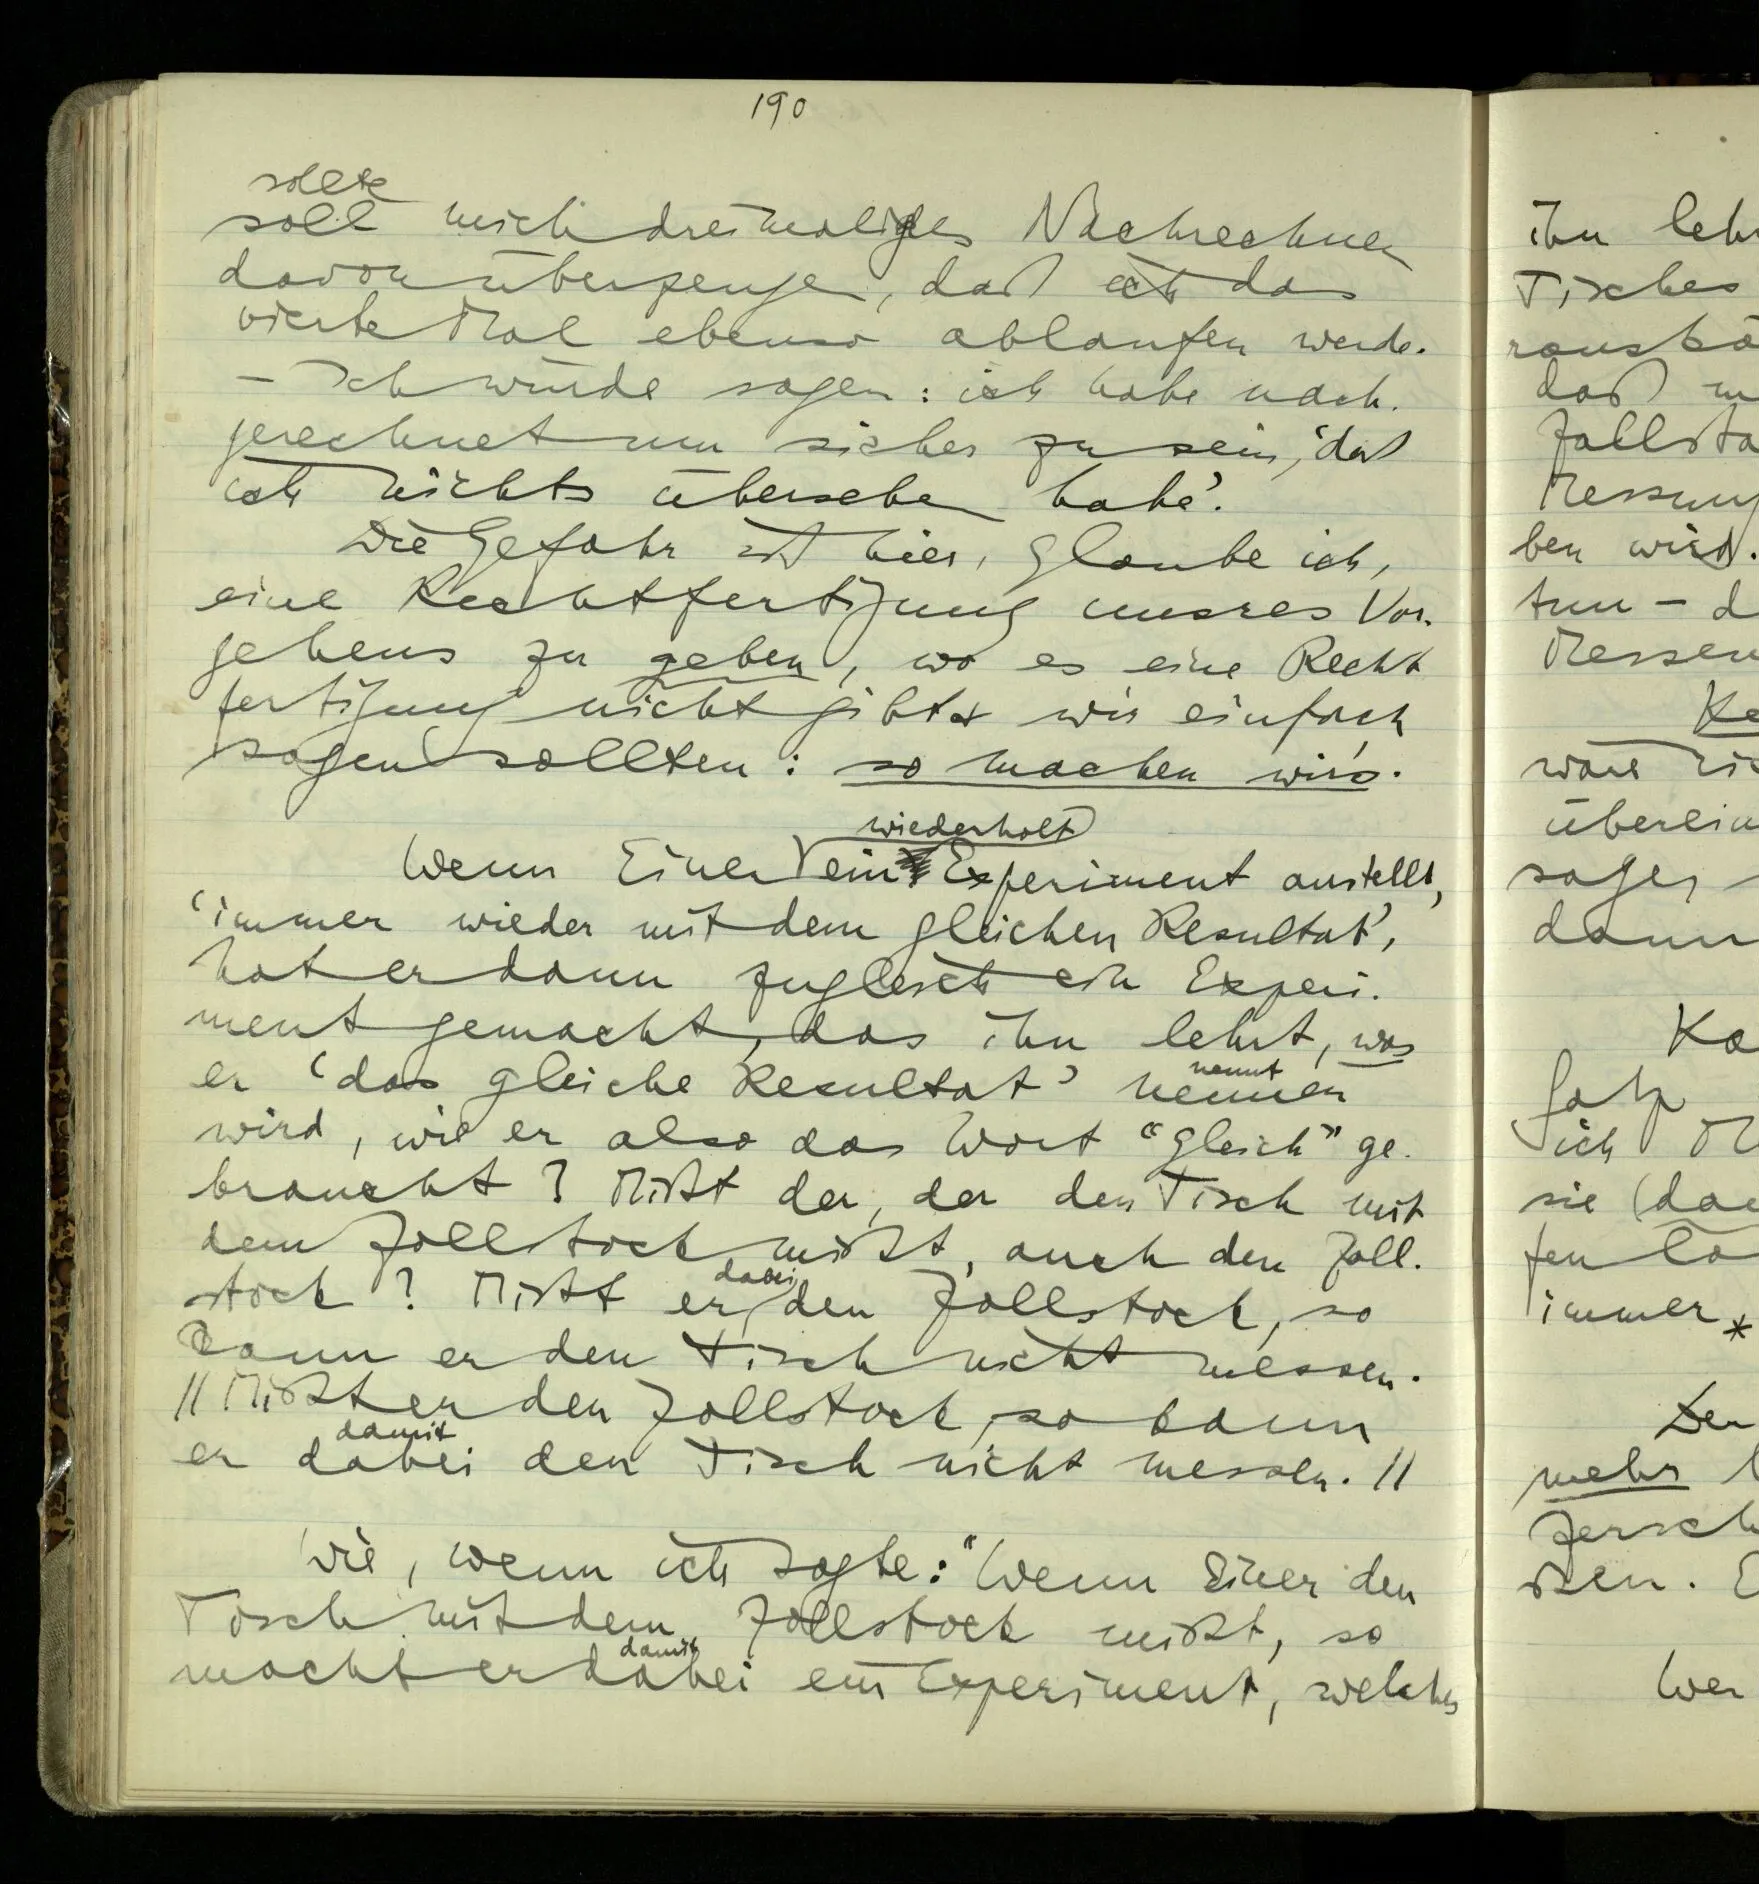 190
sollte
soll mich dreimaliges Nachrechnen
davon überzeugen, daß ich das
vierte Mal ebenso ablaufen werde.
– Ich würde sagen: ich habe nach-
gerechnet um sicher zu sein, 'daß
ich nichts übersehen habe'.
Die Gefahr ist hier, glaube ich,
eine Rechtfertigung unsres Vor-
gehens zu geben, wo es eine Recht
fertigung nicht gibt & wir einfach
sagen sollten: so machen wir's.
wiederholt
Wenn Einer ein Experiment anstellt,
'immer wieder mit dem gleichen Resultat',
hat er dann zugleich ein Experi-
ment gemacht, das ihn lehrt, was
er 'das gleiche Resultat' nennen
nennt
wird, wie er also das Wort "gleich" ge-
braucht? Mißt der, der den Tisch mit
dem Zollstock mißt, auch den Zoll-
stock? Mißt er den Zollstock, so
dabei
kann er den Tisch nicht messen.
// Mißt er den Zollstock, so kann
damit
er dabei den Tisch nicht messen. //
Wie, wenn ich sagte: "Wenn Einer den
Tisch mit dem Zollstock mißt, so
damit
macht er dabei ein Experiment, welches
ihn leh
Tisches
rauskö
daß
Zollsta
Messung
ben wird.
tun – d
Messen
Ke
wäre
überein
sagen
dann
Ka
Satz
ich M
sie (da
fen
immer *
Der
mehr
zersch
ßen. E
Wer